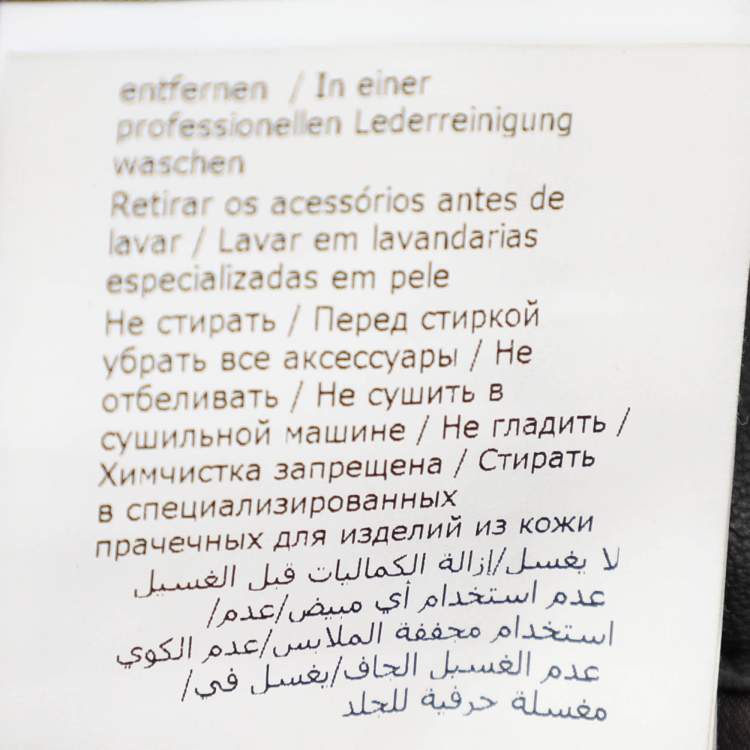 entfernen / In einer
professionellen Lederreinigung
waschen
Retirar os acessórios antes de
lavar / Lavar em lavandarias
especializadas em pele
Не стирать / Перед стиркой
убрать все аксессуары / Не
отбеливать / Не сушить в
сушильной машине / Не гладить /
Химчистка запрещена / Стирать
в специализированных
прачечных для изделий из кожи
لا يغسل/إزالة الكماليات قبل الغسيل
عدم استخدام أي مبيض/عدم/
استخدام مجففة الملابس/عدم الكوي
عدم الغسيل الجاف/يغسل في/
مغسلة حرفية للجلد